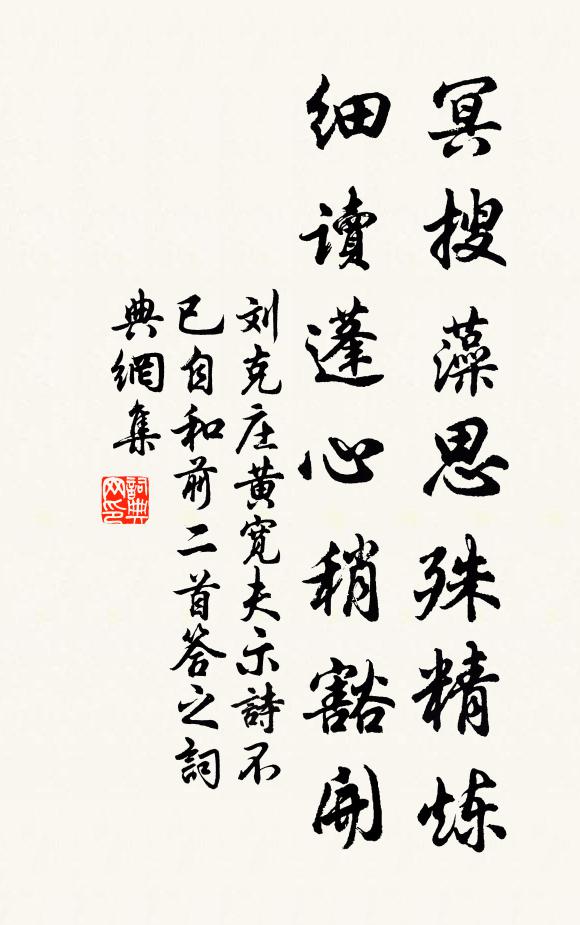 冥搜藻思殊精炼
细读蓬心稍豁开
刘克庄黄宽夫示詩不
已自和前二首答之詞
典網集
詞典
网印